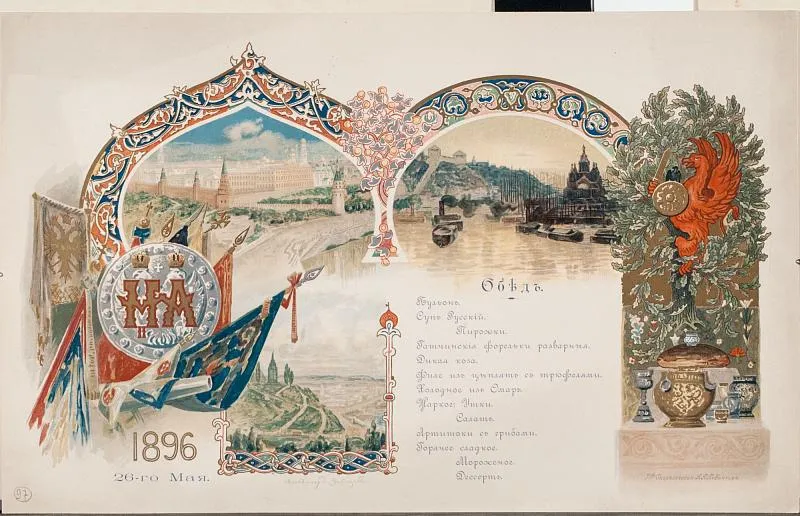 НА
II
1896
26-го Мая.
Обѣдъ.
Бульонъ.
Супъ Русскій.
Пирожки.
Гатчинскія форельки разварныя.
Дикая коза.
Филе изъ цыплятъ съ трюфелями.
Холодное изъ Омаръ.
Жаркое: Утки.
Салатъ.
Артишоки съ грибами.
Горячее сладкое.
Мороженое.
Дессертъ.
97